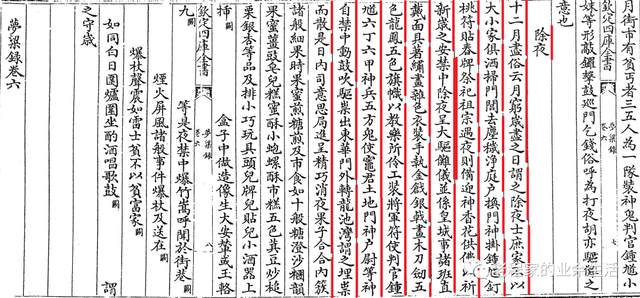 月街市有貧丐者三五人為一隊裝神鬼判官鍾馗小
欽定四庫全書
卷六
七
妹等形敲鑼擊鼓巡門乞錢俗呼為打夜胡亦驅儺之
意也
除夜
十二月盡俗云月窮歲盡之日謂之除夜士庶家不以
大小家俱洒掃門閭去塵穢淨庭戶換門神掛鍾馗釘
桃符貼春牌祭祀祖宗遇夜則備迎神香花供佛以祈
新歲之安禁中除夜呈大驅儺儀並係皇城司諸班直
戴面具著繡畫雜色衣裝手執金戧銀戟畫木刀劒五
色龍鳳五色旗幟以教樂所伶工裝將軍符使判官鍾
馗六丁六甲神兵五方鬼使竈君土地門神戶尉等神
自禁中動鼓吹驅祟出東華門外轉龍池灣謂之埋祟
而散是日内司意思局進呈精巧消夜果子合合内簇
諸般細果時果蜜煎糖煎及市食如十般糖澄沙糰韻
果蜜薑豉皂兒糕蜜酥小鮑螺酥市糕五色萁豆炒槌
栗銀杏等品及排小巧玩具頭兒牌兒貼兒小酒器上
插闕 盒子中做造像生大安輦或玉輅
欽定四庫全書
夢粱錄
卷六
八
九闕 等是夜禁中爆竹嵩呼聞於街巷
闕 煙火屏風諸般事件爆仗及送在闕
爆仗聲震如雷士貧不以貧富家闕
如同白日圍爐團坐酌酒唱歌鼓闕 謂
之守歲
夢粱錄卷六
家的业余生活